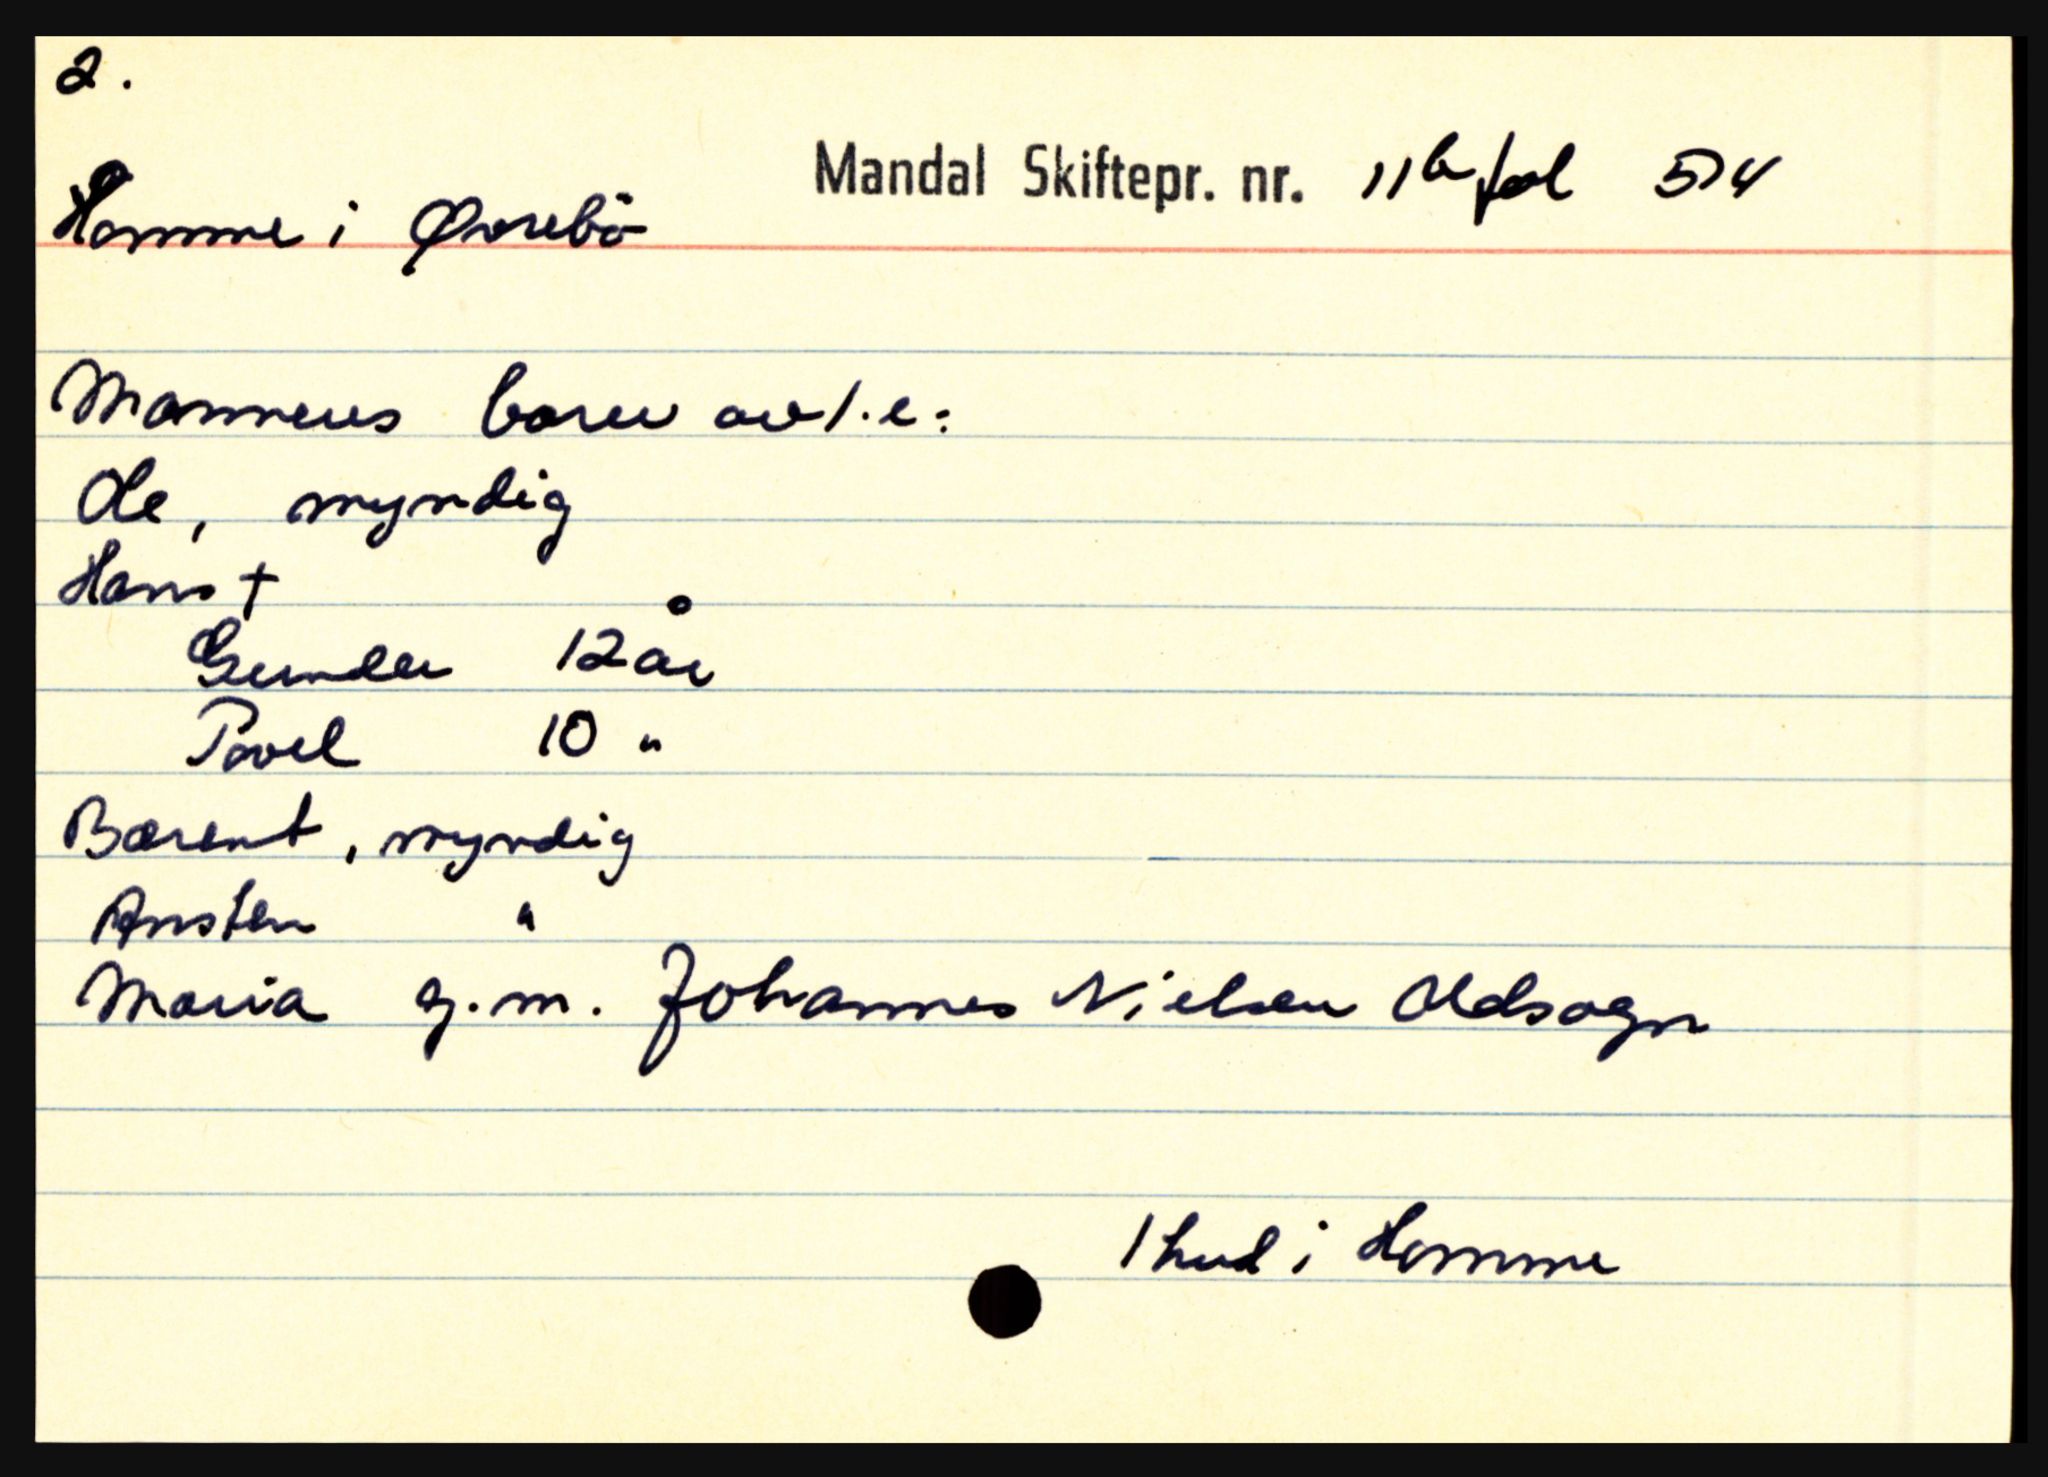 2.
Mandal Skiftepr. nr. 11b fol 574
Homme i Øvrebö
Mannens barn av 1. e:
Ole, myndig
Hans †
Gunder 12 år
Pavel 10 "
Berent, myndig
Ansten "
Maria g. m. Johannes Nielsen Udsogn
1 hud i Homme